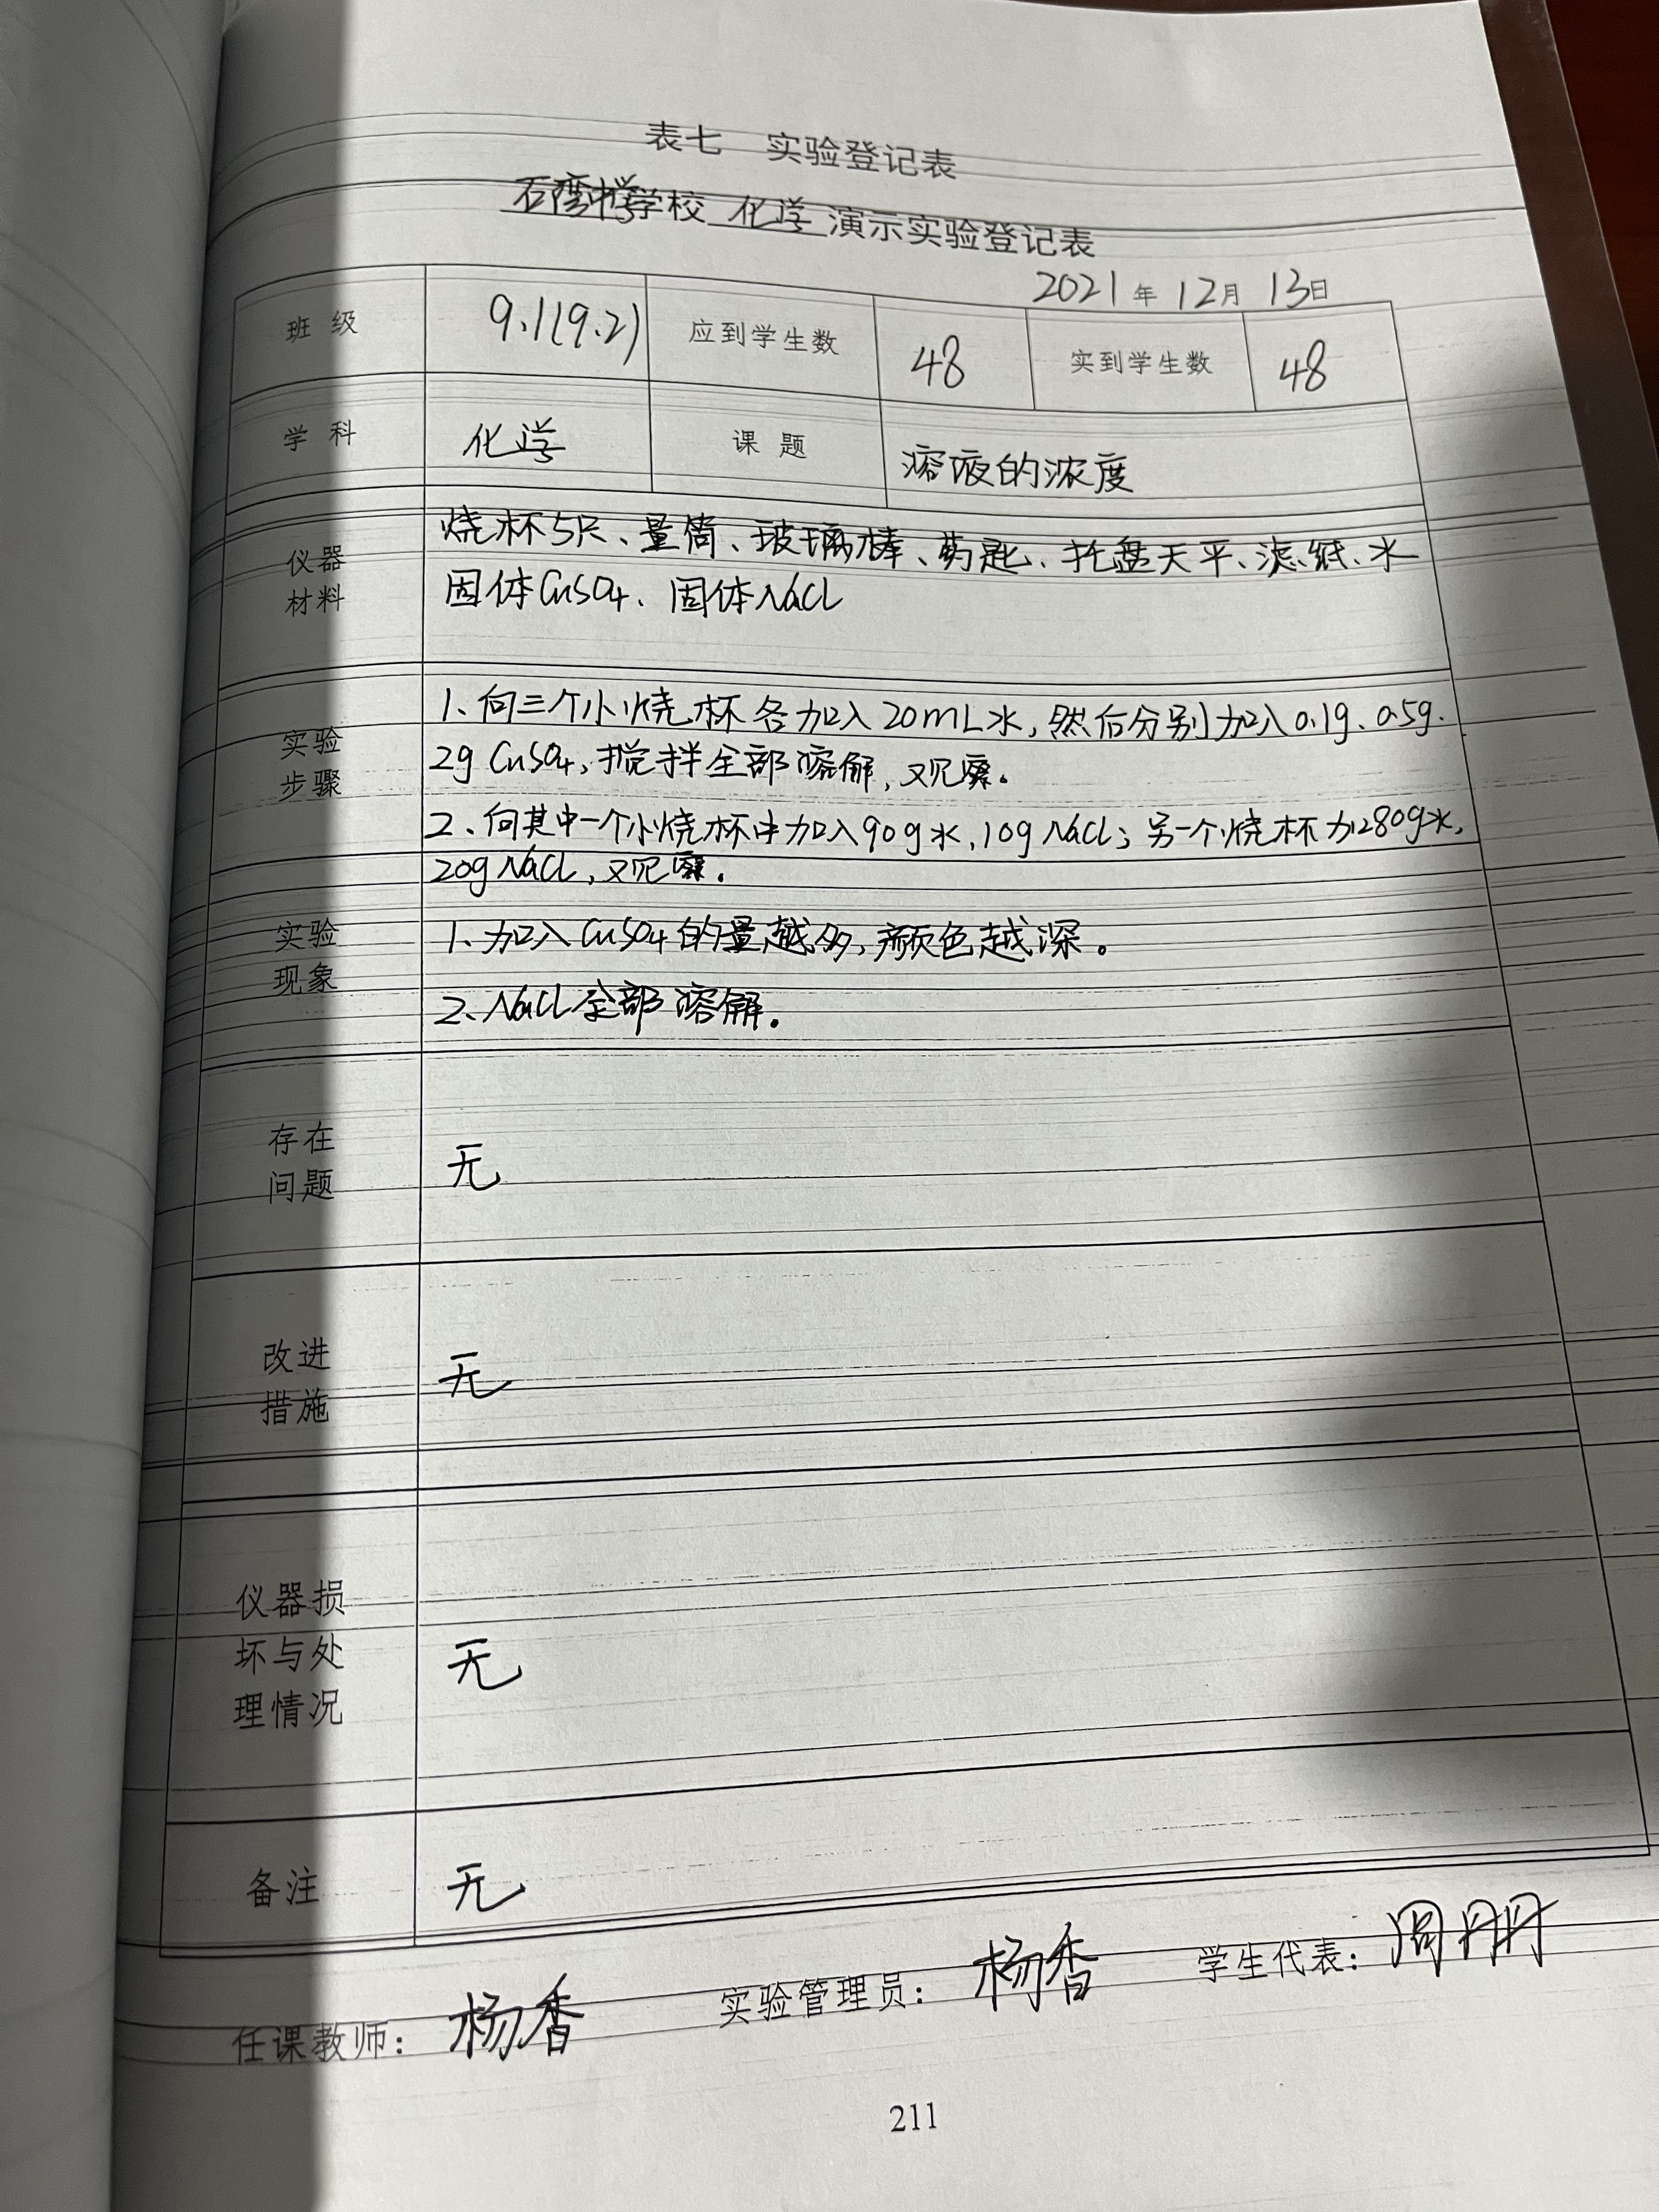 表七 实验登记表
石湾中学学校 化学 演示实验登记表
2021年12月13日
班级 9.1(9.2) 应到学生数 48 实到学生数 48
学科 化学 课题 溶液的浓度
仪器
材料
烧杯5只、量筒、玻璃棒、药匙、托盘天平、滤纸、水
固体CuSO4、固体NaCl
实验
步骤
1、向三个小烧杯各加入20mL水,然后分别加入0.1g、0.5g、
2g CuSO4,搅拌全部溶解,观察。
2、向其中一个小烧杯中加入90g水,10g NaCl;另一个烧杯加入80g水,
20g NaCl,观察。
实验
现象
1、加入CuSO4的量越多,颜色越深。
2、NaCl全部溶解。
存在
问题
无
改进
措施
无
仪器损
坏与处
理情况
无
备注 无
任课教师: 杨香 实验管理员: 杨香 学生代表: 周朋
211